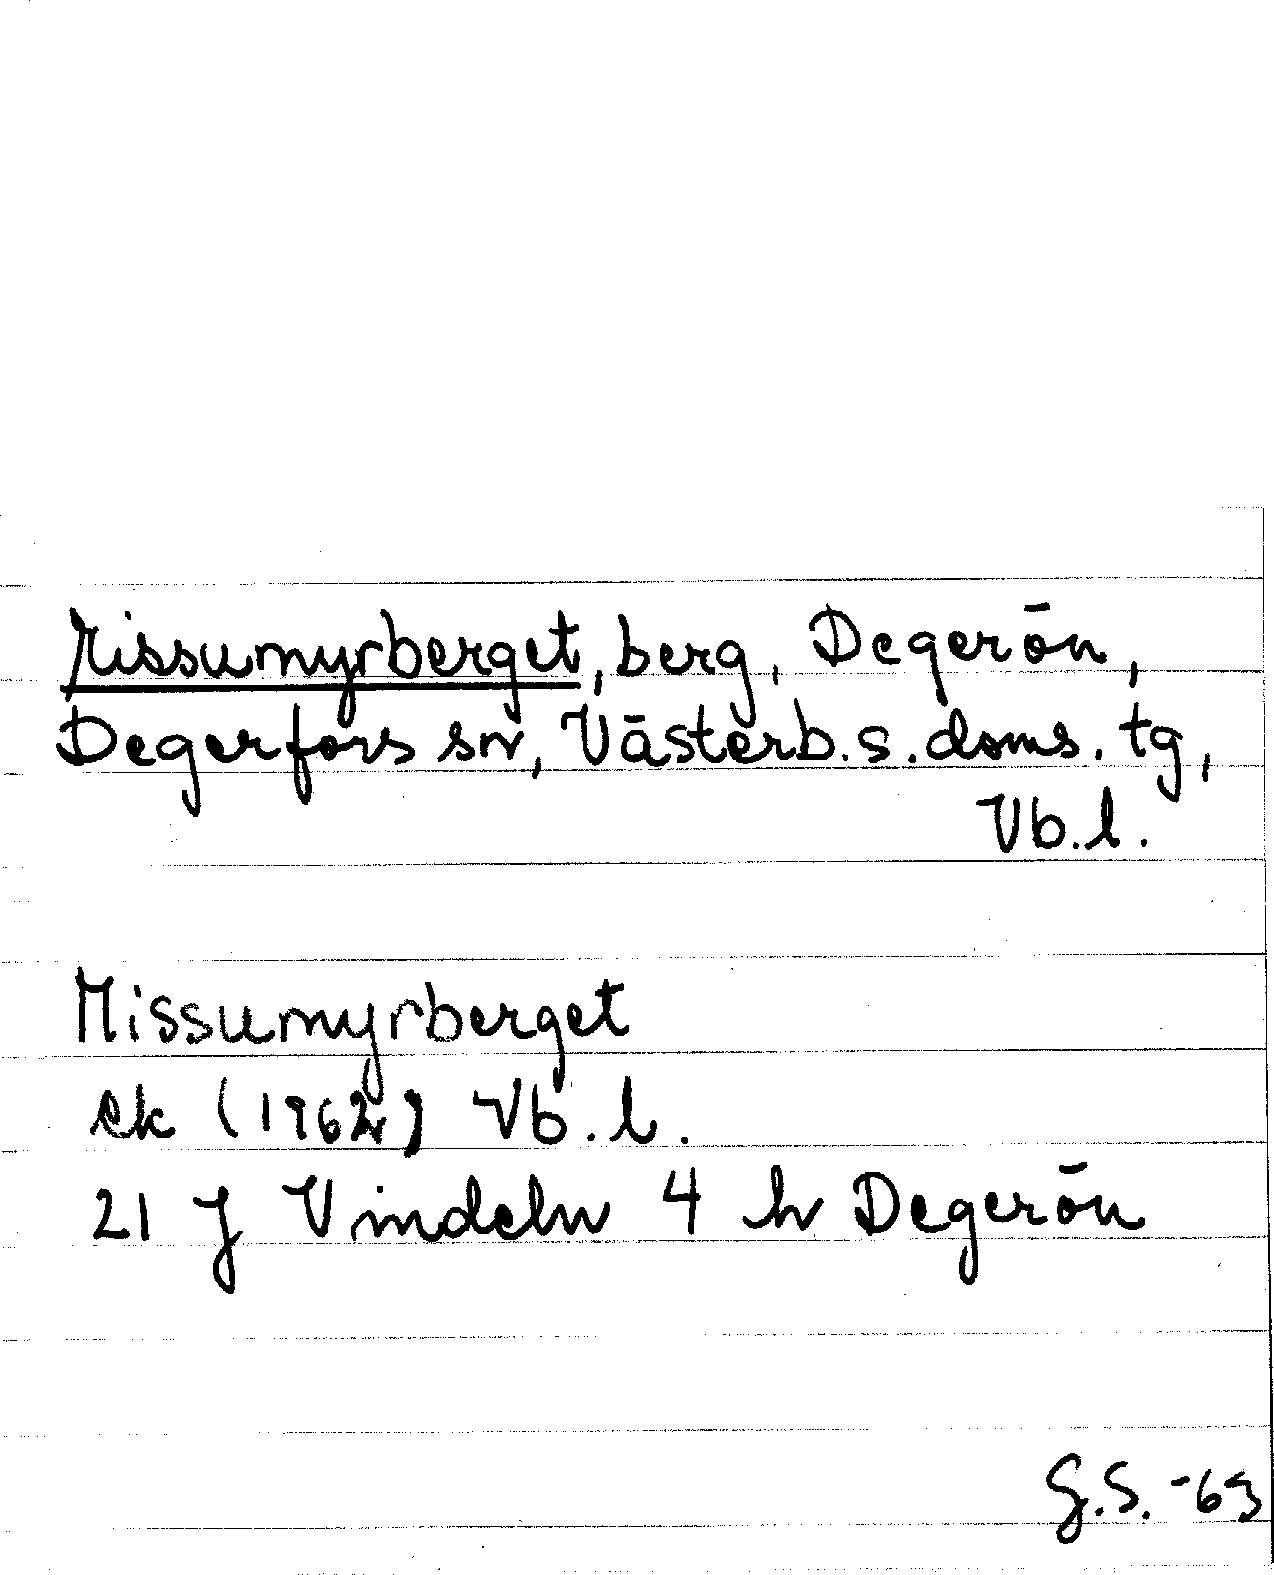 Missumyrberget, berg, Degerön,
Degerfors sn, Västerb. s. doms. tg,
Vb. l.
Missumyrberget
ek (1962) Vb. l.
21 J Vindeln 4 h Degerön
G.S. -63